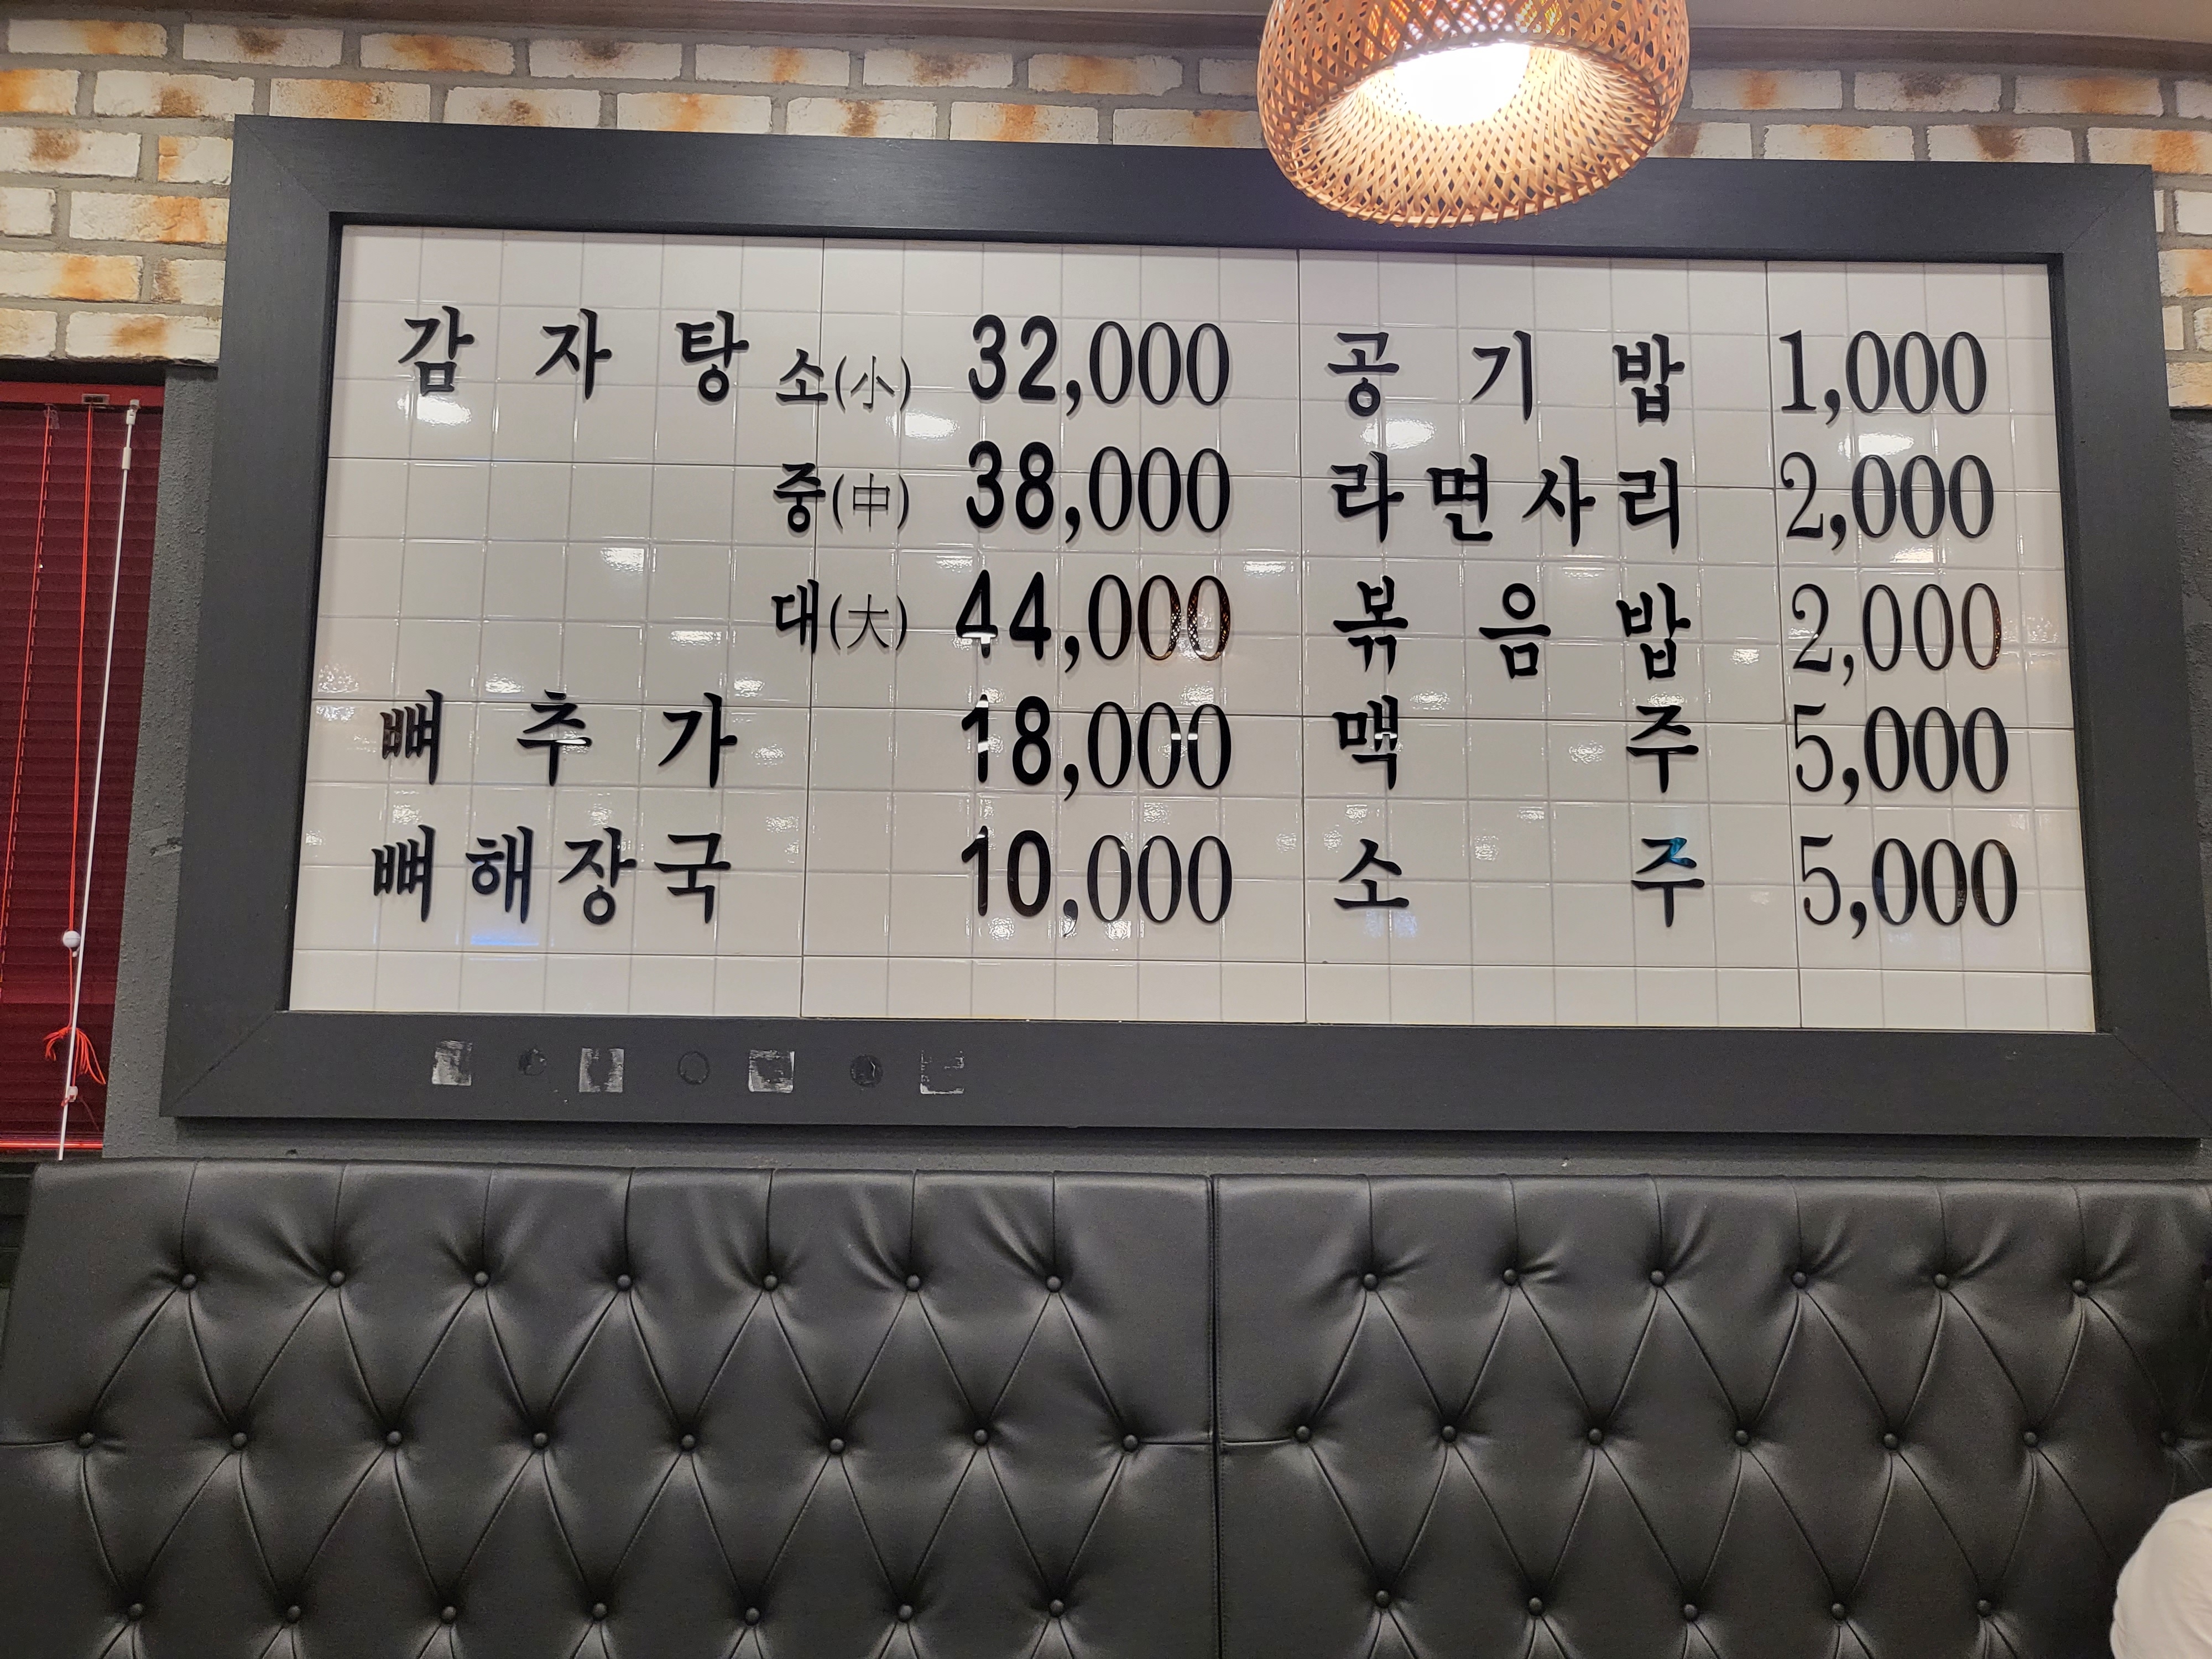 감자탕 소(小) 32,000
중(中) 38,000
대(大) 44,000
뼈추가 18,000
뼈해장국 10,000
공기밥 1,000
라면사리 2,000
볶음밥 2,000
맥주 5,000
소주 5,000